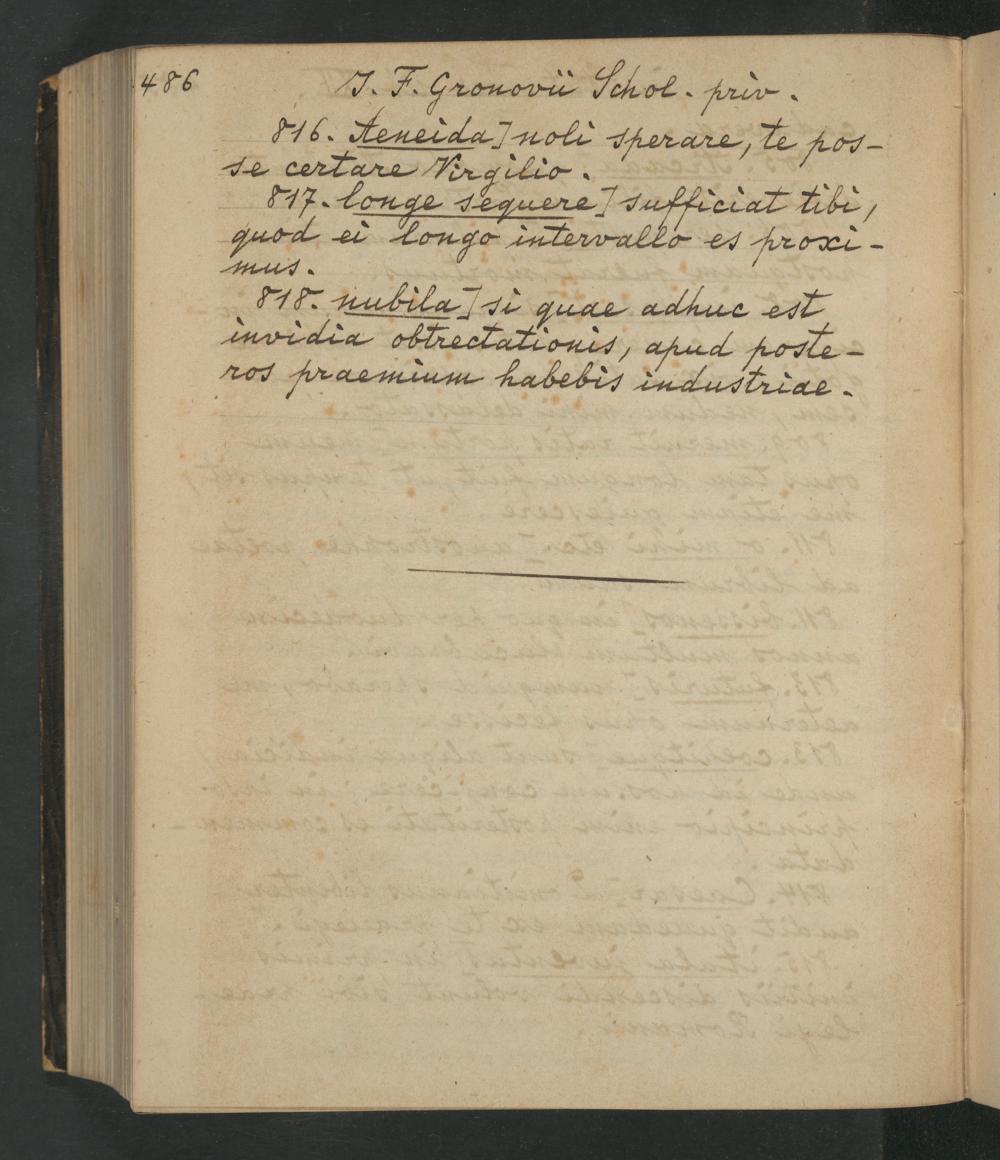 486
J. F. Gronovii Schol. priv.
816. Aeneida] noli sperare, te pos-
se certare Virgilio.
817. longe sequere] sufficiat tibi,
quod ei longo intervallo es proxi-
mus.
818. nubila] si quae adhuc est
invidia obtrectationis, apud poste-
ros praemium habebis industriae.